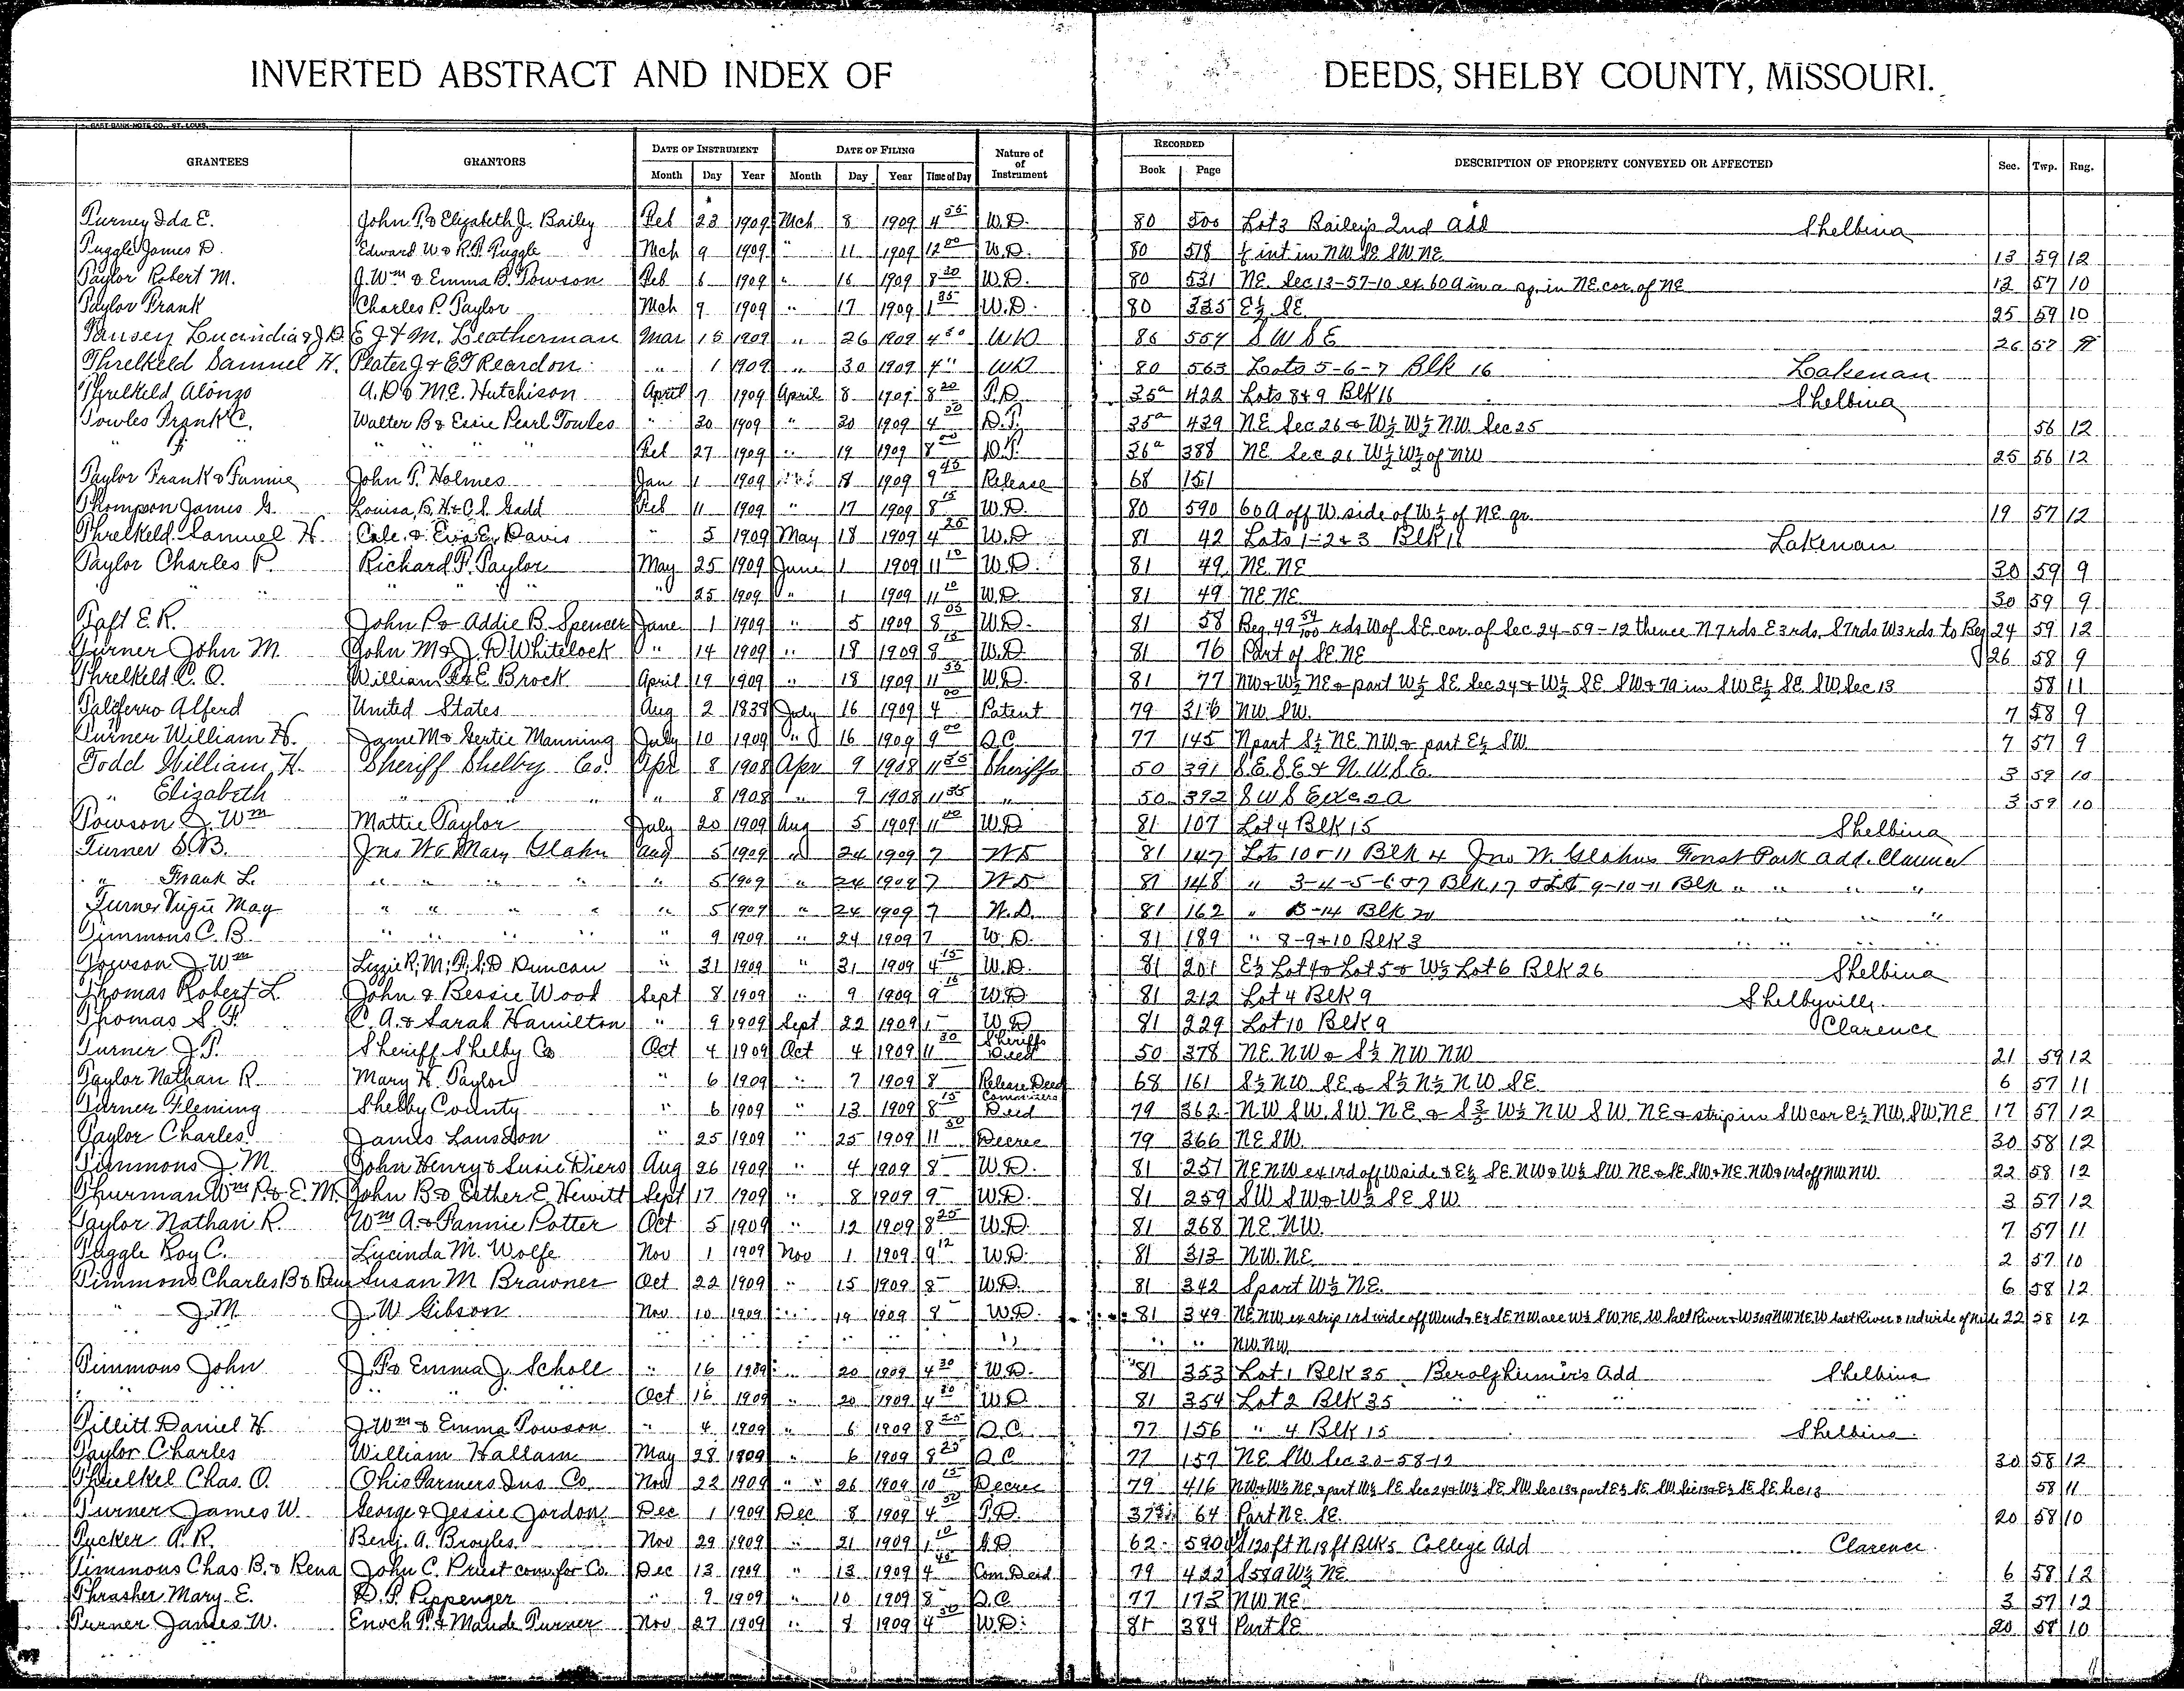 INVERTED ABSTRACT AND INDEX OF DEEDS, SHELBY COUNTY, MISSOURI.
GRANTEES GRANTORS DATE OF INSTRUMENT DATE OF FILING Nature of of Instrument RECORDED DESCRIPTION OF PROPERTY CONVEYED OR AFFECTED Sec. Twp. Rng.
Month Day Year Month Day Year Time of Day Book Page
Turney Ida E. John T. & Elizabeth J. Bailey Feb 23 1909 Mch 8 1909 4 55 W.D. 80 500 Lot 3 Bailey's 2nd Add Shelbina
Tuggle James D. Edward W. & R.F. Tuggle Mch 9 1909 " 11 1909 12 00 W.D. 80 518 int in NW SE SW NE 13 59 12
Taylor Robert M. J. Wm & Emma B. Towson Feb 6 1909 " 16 1909 8 30 W.D. 80 531 NE Sec 13-57-10 ex 60a in a sq. in NE cor. of NE 13 57 10
Taylor Frank Charles P. Taylor Mch 9 1909 " 17 1909 1 35 W.D. 80 535 E½ SE 25 59 10
Lucindia & J.D. E J & M. Leatherman Mar 15 1909 " 26 1909 4 30 WD 80 557 SW SE 26 57
Threlkeld Samuel H. Plater J & E T Reardon " 1 1909 " 30 1909 4 WD 80 563 Lots 5-6-7 Blk 16 Lakenan
Threlkeld Alonzo A.D & M.E. Hutchison April 7 1909 April 8 1909 8 20 T.D 35a 422 Lots 8 & 9 Blk 16 Shelbina
Towles Frank C. Walter B & Essie Pearl Towles " 20 1909 " 20 1909 4 30 D.T. 35a 439 NE Sec 26 & W½ W½ NW Sec 25 56 12
" " " " " Feb 27 1909 " 19 1909 8 00 D.T. 36a 388 NE Sec 26 W½ W½ of NW 25 56 12
Taylor Frank & Fannie John T. Holmes Jan 1 1909 " 8 1909 9 45 Release 68 151
Thompson James G. Louisa, B. H. & C.S. Gadd Feb 11 1909 " 17 1909 8 15 W.D. 80 590 60 A off W side of W½ of NE qr. 19 57 12
Threlkeld Samuel H. Cale & Eva E. Davis " 5 1909 May 18 1909 4 25 W.D 81 42 Lots 1-2 & 3 Blk 11 Lakenan
Taylor Charles P. Richard P. Taylor May 25 1909 June 1 1909 11 10 W.D. 81 49 NE NE 30 59 9
" " " " " " 25 1909 " 1 1909 11 10 W.D. 81 49 NE NE 30 59 9
Taft E.R. John P & Addie B. Spencer June 1 1909 " 5 1909 8 05 W.D. 81 58 Beg 49 59/100 rds W of SE cor. of Sec 24-59-12 thence N 7 rds E 3 rds, S 7 rds W 3 rds to Beg 24 59 12
Turner John M. John M & J.D. Whitelock " 14 1909 " 18 1909 8 15 W.D. 81 76 Part of SE NE 26 58 9
Threlkeld C. O. William & E Brock April 19 1909 " 18 1909 11 55 W.D. 81 77 NW & W½ NE & part W½ SE Sec 24 & W½ SE SW & 7a in SW E½ SE SW Sec 13 58 11
Taliferro Alferd United States Aug 2 1838 July 16 1909 4 00 Patent 79 316 NW SW. 7 58 9
Turner William H. Jame M & Gertie Manning July 10 1909 " 16 1909 9 00 Q.C. 77 145 N part S½ NE NW & part E½ SW 7 57 9
Todd William H. Sheriff Shelby Co. Apr 8 1908 Apr 9 1908 11 35 Sheriffs 50 391 S.E. SE & N.W.S.E. 3 59 10
" Elizabeth " " " 8 1908 " 9 1908 11 35 " 50 392 SW S E exc 2 a 3 59 10
Towson J. Wm Mattie Taylor July 20 1909 Aug 5 1909 11 00 W.D 81 107 Lot 4 Blk 15 Shelbina
Turner S.B. Jno W & Mary Glahn Aug 5 1909 " 24 1909 7 WD 81 147 Lots 10 & 11 Blk 4 Jno W. Glahns Forest Park add. Clarence
" Frank L. " " " " " " 5 1909 " 24 1909 7 WD 81 148 " 3-4-5-6 & 7 Blk 17 & Lots 9-10-11 Blk " " " "
Turner May " " " " " 5 1909 " 24 1909 7 W.D. 81 162 " 13-14 Blk 20 " "
Timmons C. B. " " " " " 9 1909 " 24 1909 7 W.D. 81 189 " 8-9 & 10 Blk 3 " " "
Towson J. Wm Lizzie R; M; P; S; D Duncan " 31 1909 " 31 1909 4 15 W.D. 81 201 E½ Lot 4 & Lot 5 & W½ Lot 6 Blk 26 Shelbina
Thomas Robert L. John & Bessie Wood Sept 8 1909 " 9 1909 9 16 W.D 81 212 Lot 4 Blk 9 Shelbyville
Thomas S. F. C. A. & Sarah Hamilton " 9 1909 Sept 22 1909 1 W.D 81 229 Lot 10 Blk 9 Clarence
Turner J.T. Sheriff Shelby Co Oct 4 1909 Oct 4 1909 11 30 Sheriffs Deed 50 378 NE NW & S½ NW NW 21 59 12
Taylor Nathan R. Mary H. Taylor " 6 1909 " 7 1909 8 Release Deed 68 161 S½ NW SE & S½ N½ NW SE 6 57 11
Turner Fleming Shelby County " 6 1909 " 13 1909 8 15 Deed 79 362 NW SW, SW NE & W½ NW SW NE & strip in SW cor E½ NW, SW, NE 17 57 12
Taylor Charles James Lansdon " 25 1909 " 25 1909 11 50 Decree 79 366 NE SW. 30 58 12
Timmons J.M. John Henry & Susie Diers Aug 26 1909 " 4 1909 8 W.D. 81 251 NE NW ex 1rd off W side & E½ SE NW & W½ SW NE & SE SW & NE NW & 1rd off NW NW. 22 58 12
Thurman Wm P. & E.M. John B & Esther E. Hewitt Sept 17 1909 " 8 1909 9 W.D. 81 259 SW SW & W½ SE SW 3 57 12
Taylor Nathan R. Wm A. & Fannie Potter Oct 5 1909 " 12 1909 8 25 W.D. 81 268 NE NW. 7 57 11
Tuggle Roy C. Lucinda M. Wolfe Nov 1 1909 Nov 1 1909 9 12 W.D. 81 313 NW. NE. 2 57 10
Timmons Charles B & Susan M Brawner Oct 22 1909 " 15 1909 8 W.D. 81 342 S part W½ NE. 6 58 12
" J.M. J. W Gibson Nov 10 1909 " 19 1909 8 W.D. 81 349 NE NW ex strip 1rd wide off W end & E½ SE NW all W½ SW NE, W Salt River & W 30a NW NE W Salt River & 1rd wide of 22 58 12
" " " " " " NW NW
Timmons John J.P & Emma J. Scholl " 16 1909 " 20 1909 4 30 W.D. 81 353 Lot 1 Blk 35 Berolzheimer's Add Shelbina
" " " " " Oct 16 1909 " 20 1909 4 30 W.D 81 354 Lot 2 Blk 35 " " " "
Tillitt Daniel H. J. Wm & Emma Towson " 4 1909 " 6 1909 8 25 Q.C. 77 156 " 4 Blk 15 Shelbina
Taylor Charles William Hallam May 28 1909 " 6 1909 8 25 Q C 77 157 NE SW Sec 30-58-12 30 58 12
Threlkel Chas. O. Ohio Farmers Ins Co. Nov 22 1909 " 26 1909 10 15 Decree 79 416 NW & W½ NE & part W½ SE Sec 24 & W½ SE SW Sec 13 & part E½ SE SW Sec 13 & E½ SE SE Sec 13 58 11
Turner James W. George & Jessie Jordon Dec 1 1909 Dec 8 1909 4 50 T.D. 64 Part NE SE 20 58 10
Tucker A. R. Benj. A. Broyles Nov 29 1909 " 21 1909 1 10 62 590 S 120 ft N 18 ft Blk 5 College Add Clarence
Timmons Chas B. & Rena John C. Priest com. for Co. Dec 13 1909 " 13 1909 4 45 Com. Deed 79 422 S 58a W½ NE 6 58 12
Thrasher Mary E. D. S. Pippenger " 9 1909 " 10 1909 8 Q.C. 77 173 NW NE 3 57 12
Turner James W. Enoch T. & Maude Turner Nov 27 1909 " 8 1909 4 50 W.D. 81 384 Part SE 20 58 10